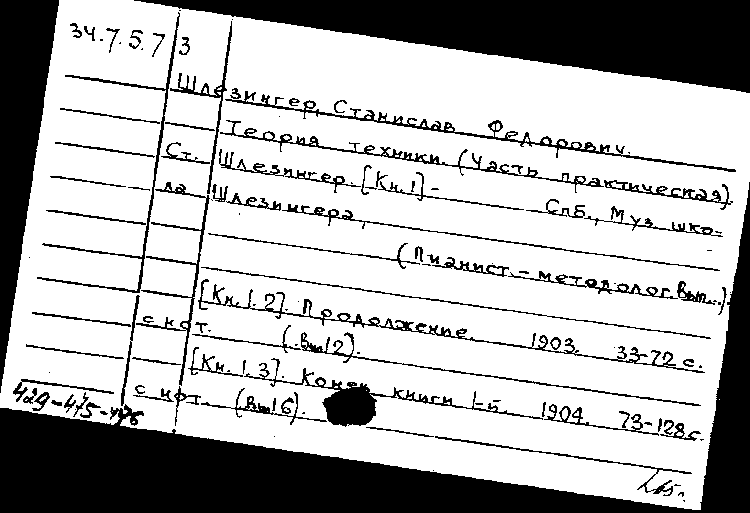 34.7.5.7 3
Шлезингер, Станислав Федорович.
Теория техники. (Часть практическая).
Ст. Шлезингер. [Кн. 1] - Спб., Муз. шко-
ла Шлезингера,
(Пианист. - методолог. Вып...).
[Кн. 1. 2]. Продолжение. 1903. 33-72 с.
с нот. (Вып 12).
[Кн. 1. 3]. Конец книги 1-й. 1904. 73-128 с.
с нот. (Вып 16).
429-475-476